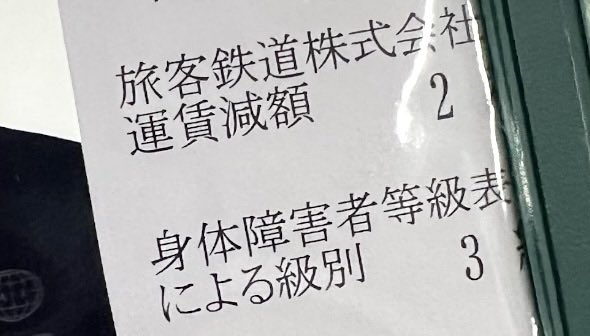 旅客鉄道株式会社
運賃減額 2
身体障害者等級表
による級別 3